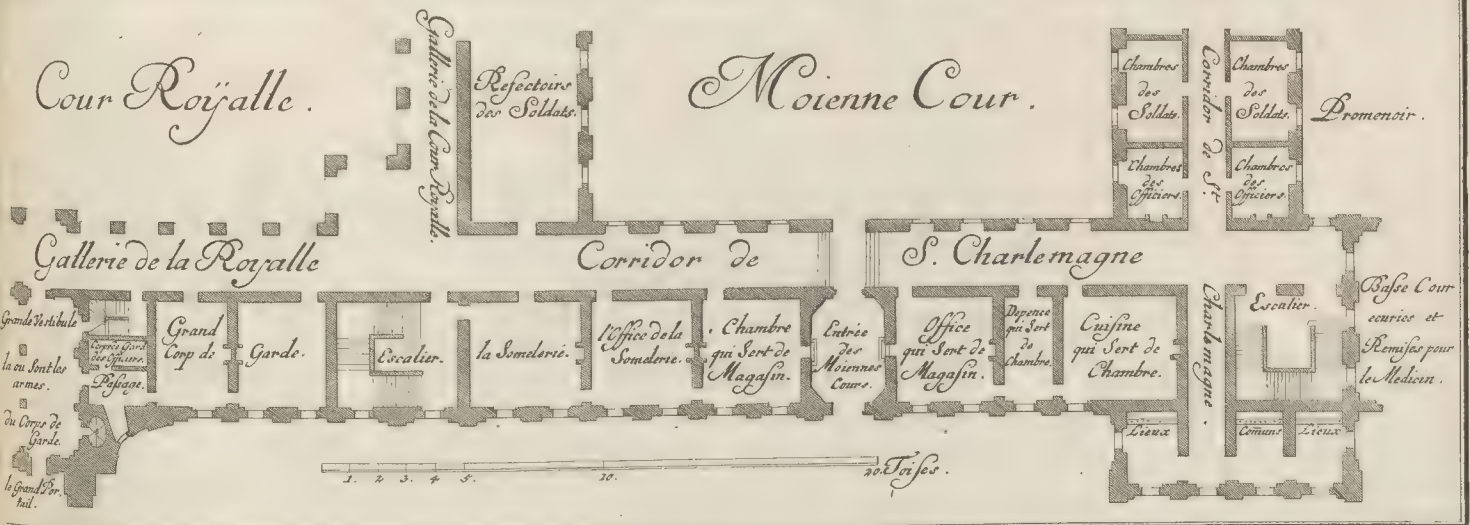 Cour Roÿalle.
Gallerie de la Cour Royalle.
Refectoirs
des Soldats.
Moienne Cour.
Chambres
des
Soldats.
Chambres
des
Officiers.
Corridor de St.
Chambres
des
Soldats.
Chambres
des
Officiers.
Promenoir.
Gallerie de la Royalle
Corridor de
S. Charlemagne
Grande Vestibule
la ou Sont les
armes.
du Corps de
Garde.
le Grand Por.
tail.
Corps de Gard
des Officiers.
Passage.
Grand
Corp de
Garde.
Escalier.
la Somelerie.
l'Office de la
Somelerie.
Chambre
qui Sert de
Magasin.
Entrée
des
Moiennes
Cours.
Office
qui Sert de
Magasin.
Depence
qui Sert
de
Chambre.
Cuisine
qui Sert de
Chambre.
Charlemagne.
Escalier.
Basse Cour
ecuries et
Remises pour
le Medicin.
Lieux
Com̄uns
Lieux
1. 2 3. 4 5. 10. 20. Toises.